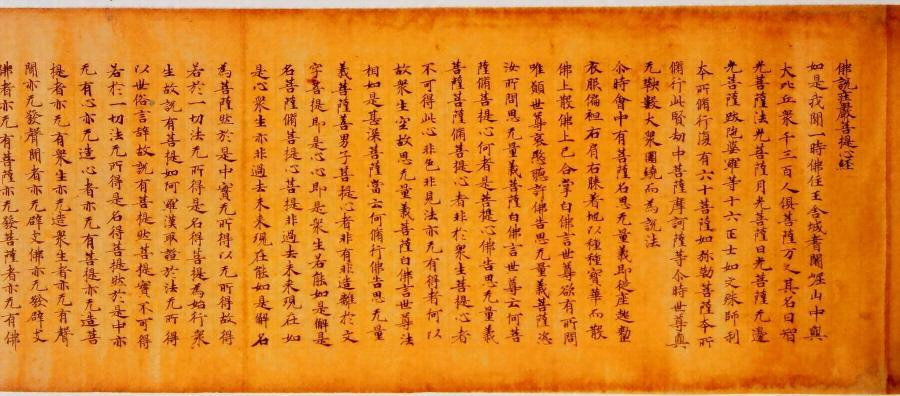 佛說莊嚴菩提心經
如是我聞一時佛住王舍城耆闍崛山中與
大比丘衆千三百人俱菩薩万二其名曰智
光菩薩法光菩薩月光菩薩日光菩薩无邊
光菩薩跋陁婆羅等十六正士如文殊師利
本所脩行復有六十菩薩如弥勒菩薩本所
脩行此賢劫中菩薩摩訶薩等尒時世尊與
无鞅數大衆圍繞而為說法
尒時會中有菩薩名思无量義即從座起整
衣服偏袒右肩右膝著地以種種寶華而散
佛上散佛上已合掌白佛言世尊欲有所問
唯願世尊哀愍聽許佛告思无量義菩薩恣
汝所問思无量義菩薩白佛言世尊云何菩
薩脩菩提心何者是菩提心佛告思无量義
菩薩菩薩脩菩提心者非於衆生菩提心者
不可得此心非色非見法亦无有得者何以
故衆生空故思无量義菩薩白佛言世尊法
相如是甚深菩薩當云何脩行佛告思无量
義菩薩善男子菩提心者非有非造離於文
字菩提即是心心即是衆生若能如是解是
名菩薩脩菩提心菩提非過去未来現在如
是心衆生亦非過去未来現在能如是解名
為菩薩然於是中實无所得以无所得故得
若於一切法无所得是名得菩提為始行衆
生故說有菩提如阿羅漢取證於法无所得
以世俗言辭故說有菩提然菩提實不可得
若於一切法无所得是名得菩提然於是中亦
无有心亦无造心者亦无有菩提亦无造菩
提者亦无有衆生亦无造衆生者亦无有聲
聞亦无發聲聞者亦无辟支佛亦无發辟支
佛者亦无有菩薩亦无發菩薩者亦无有佛